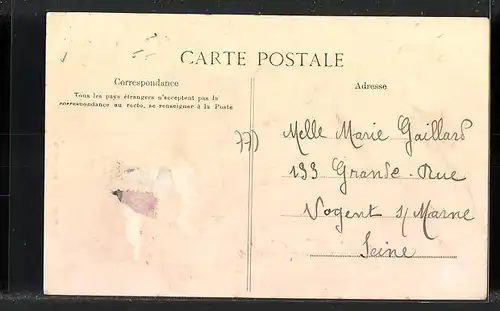 CARTE POSTALE
Correspondance
Tous les pays étrangers n'acceptent pas la
correspondance au recto, se renseigner à la Poste
Adresse
77)
Melle Marie Gaillard
133 Grande-Rue
Nogent s/ Marne
Seine